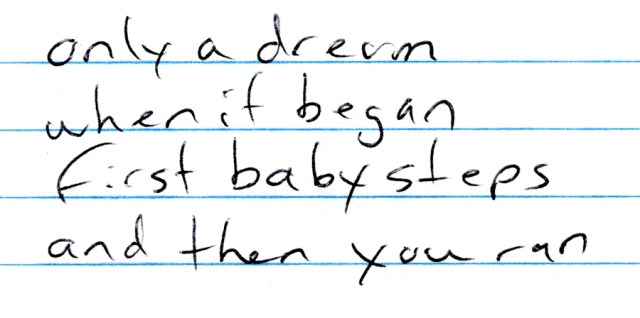 only a dream
when it began
first baby steps
and then you ran